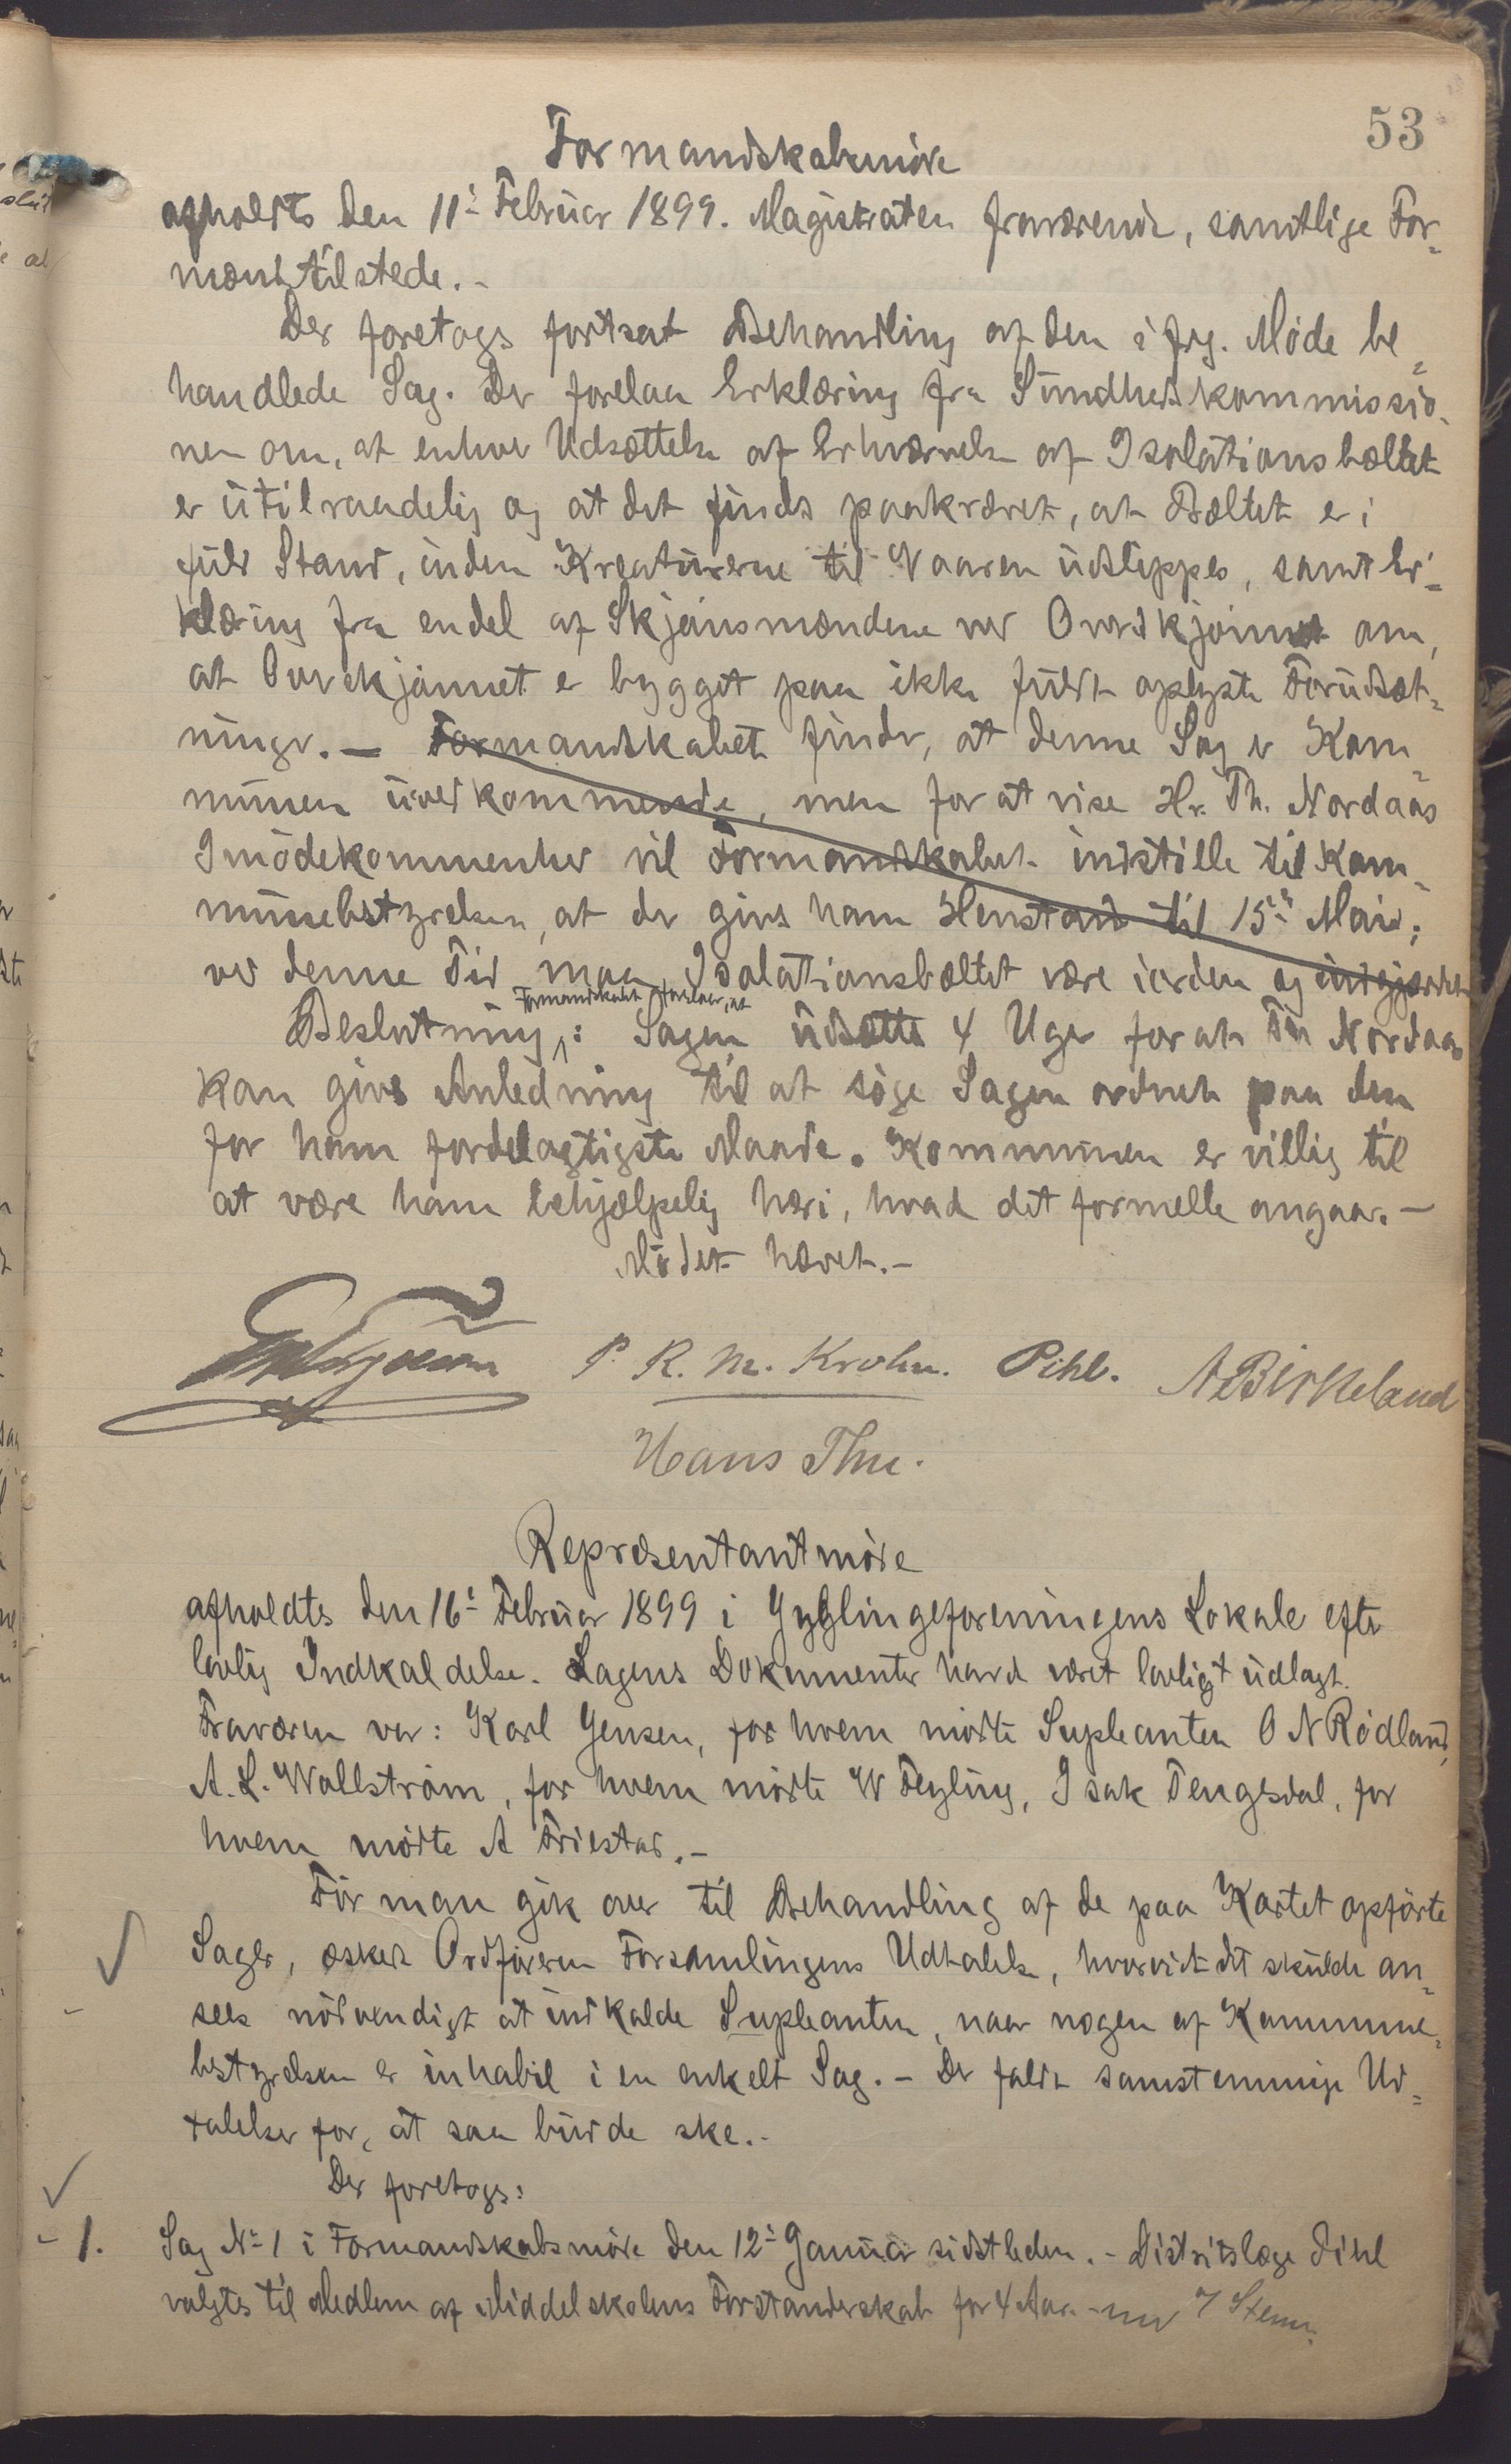 53
Formandskabsmöde
afholdts den 11te Februar 1899. Magistraten fraværende, samtlige For-
mænd tilstede.-
Der foretogs fortsat Behandling af den i frg. Möde be-
handlede Sag. Der forelaa Erklæring fra Sundhedskommissio-
nen om, at enhver Udsættelse af Erhvervelse af Isolationsbæltet
er utilraadelig og at det finds paakrævet, at Bæltet er i
fuld Stand, inden Kreaturerne til Vaaren udslippes, samt Er-
klæring fra endel af Skjönsmændene ved Overskjönnet om,
at Overskjönnet er bygget paa ikke fuldt oplyste Forudsæt-
ninger. - Formandskabet finder, at denne Sag er Kom-
munen uvedkommende, men for at vise Hr. Th. Nordaas
Imödekommenhed vil Formandskabet indstille til Kom-
munebestyrelsen, at der gives ham Henstand til 15de Mai;
ved denne Tid maa Isolationsbæltet være iorden og indgjærdet
Formandskabet foreslaar, at
Beslutning: Sagen udsættes 4 Uger forat Th Nordaas
kan gives Anledning til at söge Sagen ordnet paa den
for ham fordelagtigste Maade. Kommunen er villig til
at være ham behjælpelig heri, hvad det formelle angaar.-
Mödet hævet.-
P. R. M. Krohn. Pihl. A Birkeland
Hans Thu.
Repræsentantmöde
afholdtes den 16de Februar 1899 i Ynglingeforeningens Lokale efter
lovlig Indkaldelse. Sagens Dokumenter havde været lovligt udlagt.
Fraværen var: Karl Jensen, for hvem mödte Supleanten O N Rödland,
A. L. Wallström, for hvem mödte W Feyling, Isak Tengesdal, for
hvem mödte A Friestad.-
För man gik over til Behandling af de paa Kartet opförte
Sager, æskede Ordföreren Forsamlingens Udtalelse, hvorvidt det skulde an-
sees nödvendigt at indkalde Supleanten, naar nogen af Kommune-
bestyrelsen er inhabil i en enkelt Sag. - Der faldt samstemmige Ud-
talelser for, at saa burde ske.-
Der foretoges:
1. Sag No 1 i Formandskabsmöde den 12te Januar sidstleden. - Distriktslæge Pihl
valgtes til Medlem af Middelskolens Forstanderskab for 4 Aar. - med 7 Stemr.